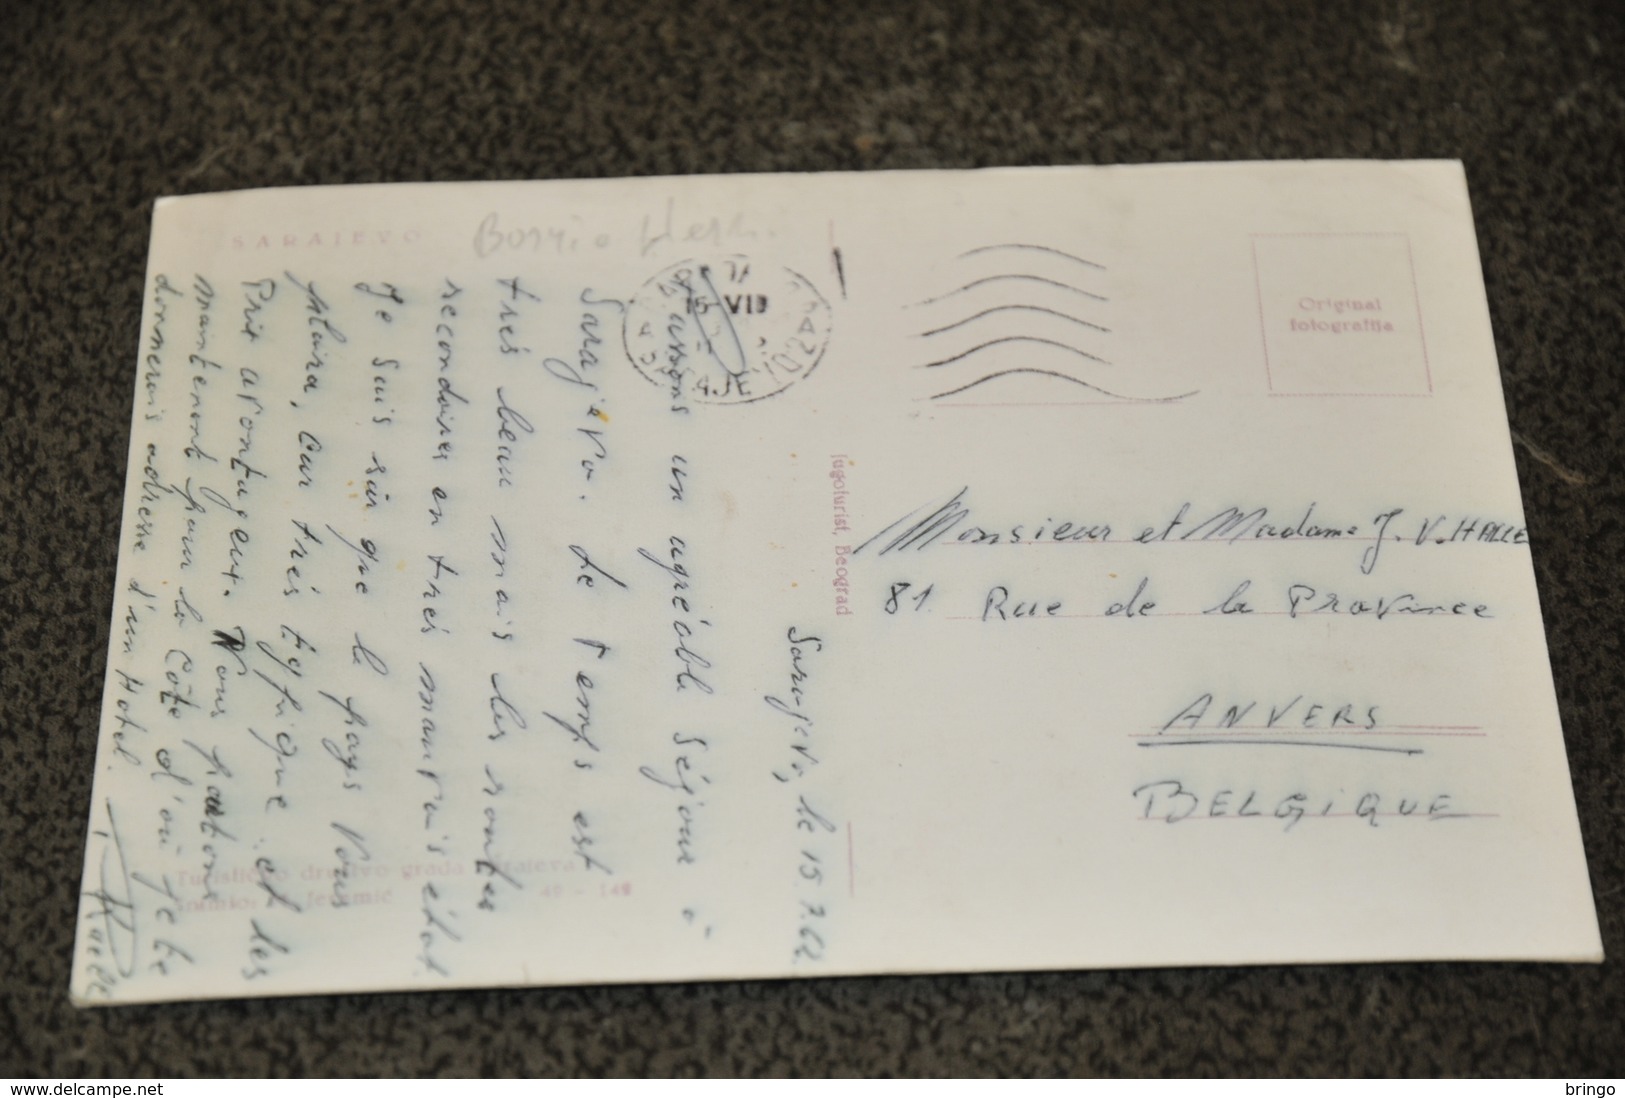 SARAJEVO
15 VII
Original
fotografija
Jugoturist, Beograd
Turističko društvo grada Sarajeva
Snimio: Jeremić
49 - 148
Sarajevo, le 15.7.62.
Passons un agréable séjour à
Sarajevo. Le temps est
très beau mais les routes
secondaires en très mauvais état.
Je suis sûr que le pays vous
plaira, car très typique et les
Prix avantageux. Nous partons
maintenant pour la Côte d'où je te
donnerais adresse d'un Hotel.
Monsieur et Madame J. V. HALLE
81 Rue de la Province
ANVERS
BELGIQUE
www.delcampe.net
bringo